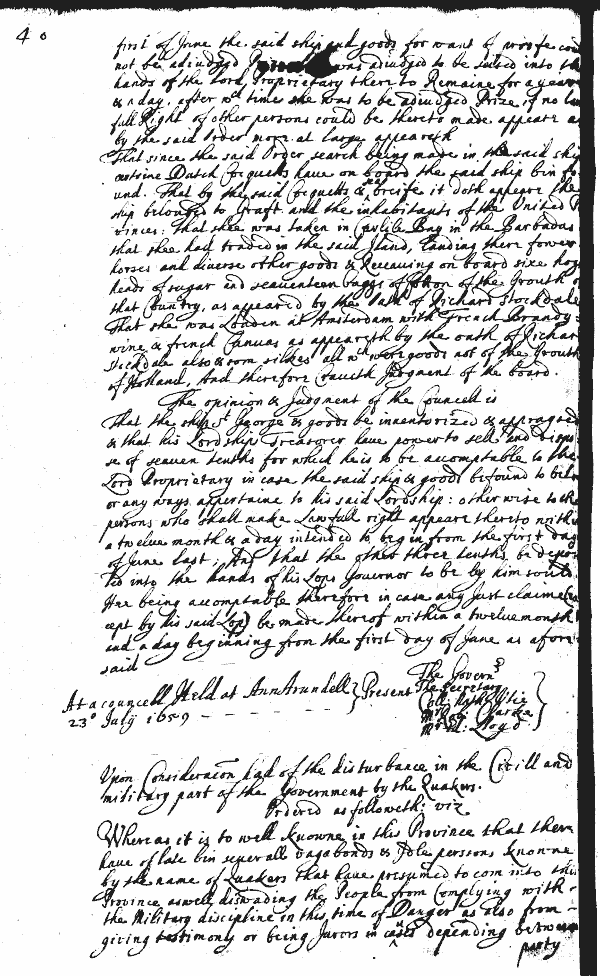 40
first of June the said ship and goods for want of proofe cou
not be adiudged was adiudged to be seised into th
hands of the Lord Proprietary there to Remaine for a yeare
& a day, after wch time she was to be adiudged Prize if no law
full Right of other persons could be thereto made appeare as
by the said Order more at large appeareth
That since the said Order search being made in the said ship
Dutch Cocquetts have on board the said ship bin fo
und. That by the said Cocquetts & sea breife it doth appere the
ship belonged to and the inhabitants of the United P
vinces: That shee was taken in Carlile Bay in the Barbadas
that shee had traded in the said Iland, landing there fower
horses and diverse other goods & Receauing on board sixe hog
heads of sugar and seauenteen baggs of Cotton of the Grouth o
that Country, as appeared by the Oath of Richard Stockdale
That she was Loaden at Amsterdam with French Brandy
wine & french Canuas as appeareth by the oath of Richar
Stockdale also & som silkes all wch were goods not of the Grouth
of Holland, And therefore Craueth Judgment of the board.
The opinion & Judgment of the Councell is
That the ship St George & goods be inuentorized & appraysed
& that his Lordships Treasorer haue power to sell and dispo
se of seauen tenths for which he is to be accomptable to the
Lord Proprietary in case the said ship & goods be found to belo
or any ways appertaine to his said Lordship: otherwise to the
persons who shall make Lawfull right appeare thereto within
a twelue month & a day intended to begin from the first day
of June last. And that the other three tenths be deposi
ted into the hands of his Lops Gouernor to be by him sould
Hee being accomptable therefore in case any just claime (ex
cept by his said Lop) be made thereof within a twelue month
and a day beginning from the first day of June as afore
said
At a councell Held at AnnArundell } Present The Governr
23o July 1659 The Secretary
Coll: Nath: Utie
Mr Lloyd

Upon Consideracon had of the disturbance in the Ciuill and
military part of the Government by the Quakers.
Ordered as followeth: viz
Whereas it is to well knowne in this Province that there
haue of late bin seuerall vagabonds & Idle persons knowne
by the name of Quakers that haue presumed to com into this
Province aswell diswading the People from Complying with
the Military discipline in this time of Danger as also from
giving testimony or being Jurors in cases depending betweene
party